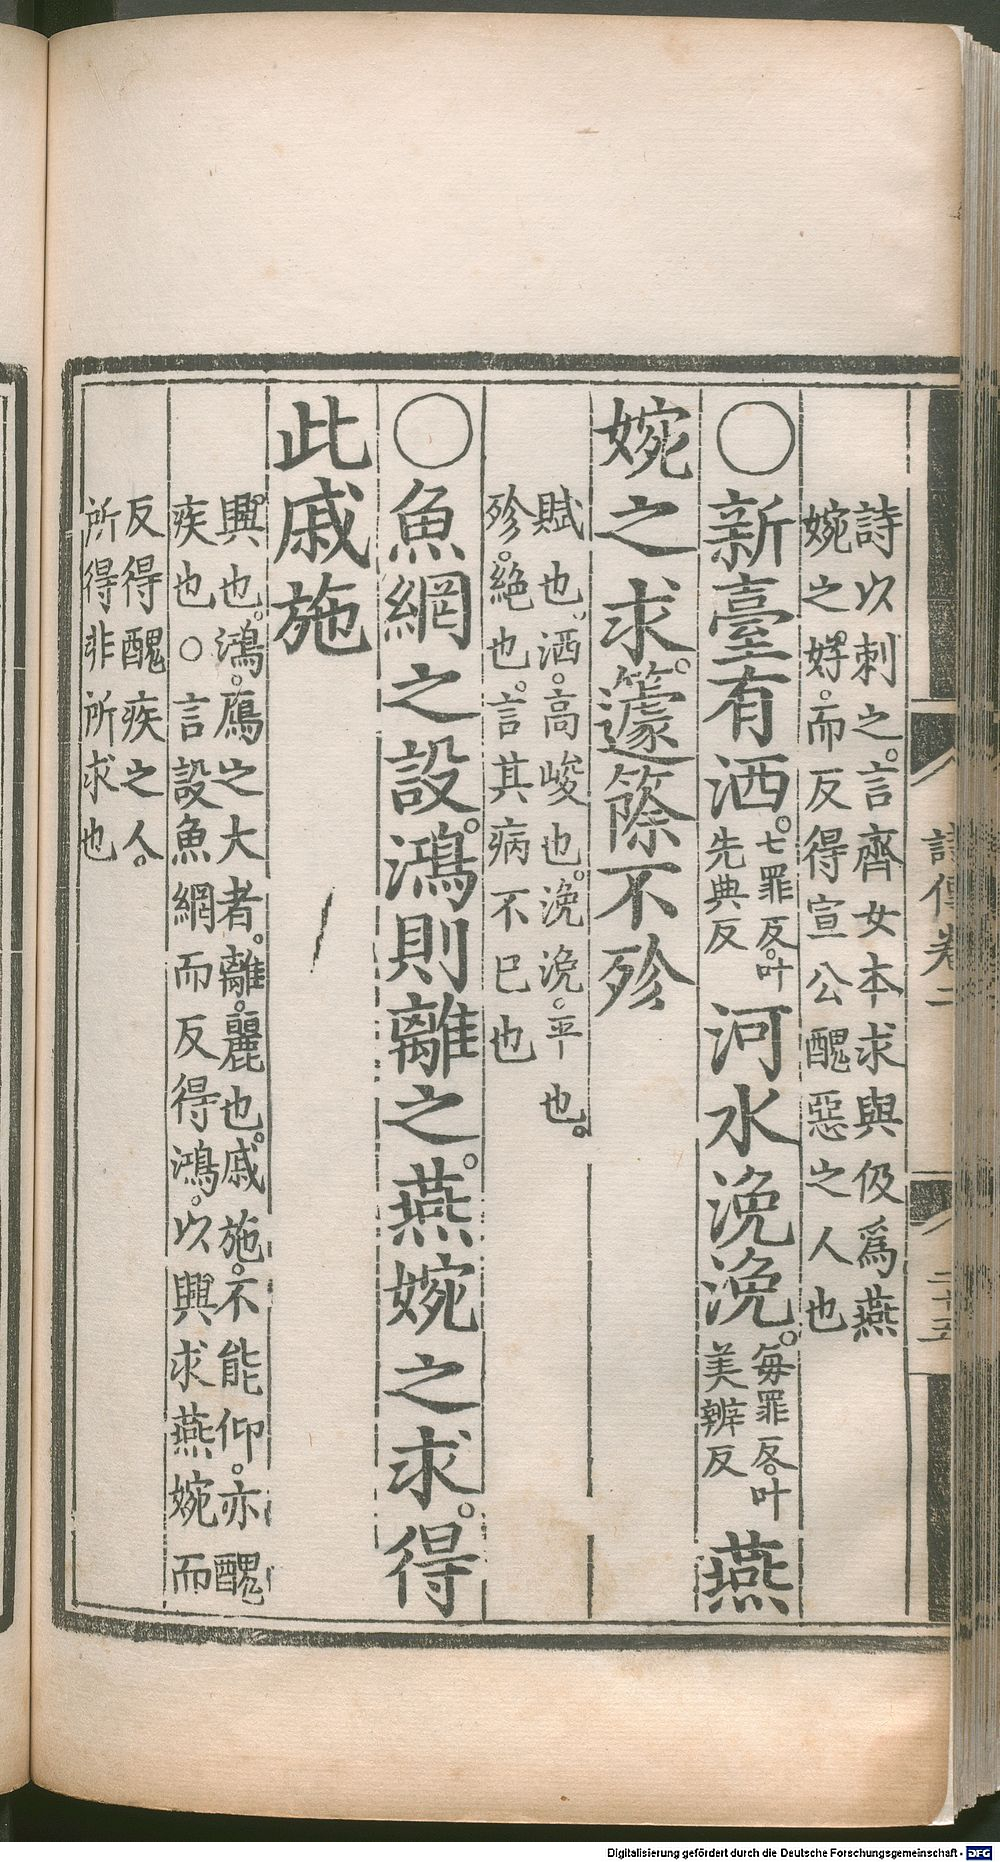 詩傳卷二
二十五
詩以刺之。言齊女本求與伋爲燕
婉之好。而反得宣公醜惡之人也
○新臺有洒。七罪反。叶先典反河水浼浼。每罪反。叶美辨反燕
婉之求。籧篨不殄
賦也。洒。高峻也。浼浼。平也。
殄。絶也。言其病不已也
○魚網之設。鴻則離之。燕婉之求。得
此戚施
興也。鴻。鴈之大者。離。麗也。戚施。不能仰。亦醜
疾也○言設魚網而反得鴻。以興求燕婉而
反得醜疾之人。
所得非所求也
Digitalisierung gefördert durch die Deutsche Forschungsgemeinschaft - DFG